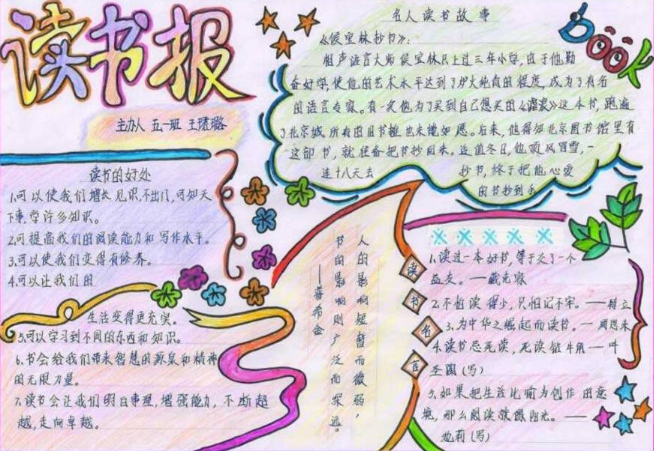 读书报
主办人 五一班 王璐璐
名人读书故事
《侯宝林抄书》:
相声语言大师侯宝林只上过三年小学,由于他勤
奋好学,使他的艺术水平达到了炉火纯青的程度,成为了有名
的语言专家。有一次他为了买到自己想买的《谑浪》这本书,跑遍
了北京城所有的旧书摊也未能如愿。后来,他得知北京图书馆里有
这部书,就准备把书抄回来。适值冬日,他顶风冒雪,一
连十八天去 抄书,终于把他心爱
的书抄到手
BOOK
读书的好处
1.可以使我们增长见识,不出门,可知天
下事,学许多知识。
2.可提高我们的阅读能力和写作水平。
3.可以使我们变得有修养。
4.可以让我们的
生活变得更充实。
5.可以学习到不同的东西和知识。
6.书会给我们带来智慧的源泉和精神
的无限力量。
7.读书会让我们明白事理,增强能力,不断超
越,走向卓越。
人的影响短暂而微弱,
书的影响则广泛而深远。
——普希金
读书名言
1.读过一本好书,等于交了一个
益友。——臧克家
2.不怕读得少,只怕记不牢。——徐特立
3.为中华之崛起而读书。—周恩来
4.读书忌死读,死读钻牛角—叶
圣陶(写)
5.如果把生活比喻为创作的意
境,那么阅读就像阳光。——
池莉(写)